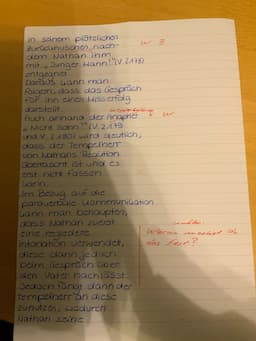 In seinem plötzlichen
Zurückwischen, nach-
dem Nathan ihm
mit „Junger Mann!" (V. 2178)
entgegnet.
Daraus kann man
folgern, dass das Gespräch
für ihn einen Misserfolg
darstellt.
Auch anhand der Anapher
„Nicht Sohn?" (V. 2179
und V. 2180) wird deutlich,
dass der Tempelherr
von Nathans Reaktion
überrascht ist und es
erst nicht fassen
kann.
Im Bezug auf die
paraverbale Kommunikation
kann man behaupten,
dass Nathan zuerst
eine
Intonation verwendet,
diese dann jedoch
beim Gespräch über
den Vater nachlässt.
Jedoch fängt dann der
Tempelherr an diese
zu nutzen, wodurch
Nathan seine
W
W
Woran machst du
das fest?